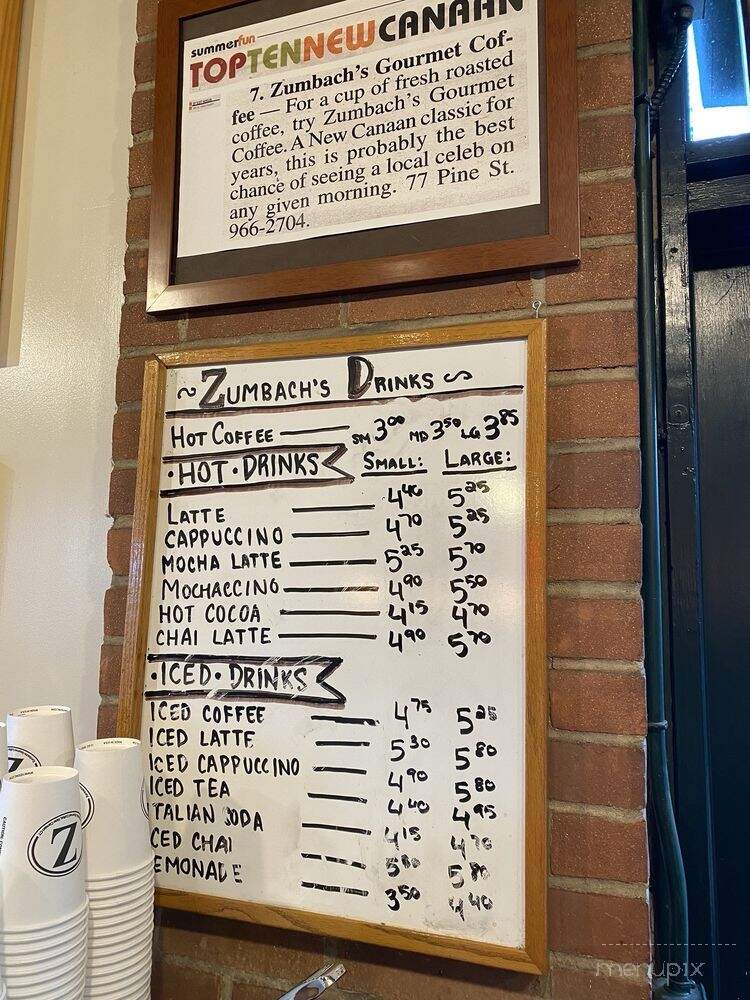 summerfun
TOPTENNEWCANAAN
7. Zumbach's Gourmet Cof-
fee — For a cup of fresh roasted
coffee, try Zumbach's Gourmet
Coffee. A New Canaan classic for
years, this is probably the best
chance of seeing a local celeb on
any given morning. 77 Pine St.
966-2704.
~ ZUMBACH'S DRINKS ~
HOT COFFEE SM 3⁰⁰ MD 3⁵⁰ LG 3⁸⁵
·HOT·DRINKS SMALL: LARGE:
LATTE 4⁴⁰ 5²⁵
CAPPUCCINO 4⁷⁰ 5²⁵
MOCHA LATTE 5²⁵ 5⁷⁰
MOCHACCINO 4⁹⁰ 5⁵⁰
HOT COCOA 4¹⁵ 4⁷⁰
CHAI LATTE 4⁹⁰ 5⁷⁰
·ICED·DRINKS
ICED COFFEE 4⁷⁵ 5²⁵
ICED LATTE 5³⁰ 5⁸⁰
ICED CAPPUCCINO 4⁹⁰ 5⁸⁰
ICED TEA 4⁴⁰ 4⁹⁵
ITALIAN SODA 4¹⁵ 4⁷⁰
ICED CHAI 5⁸⁰ 5⁸⁰
LEMONADE 3⁵⁰ 4⁴⁰
Z
menupix